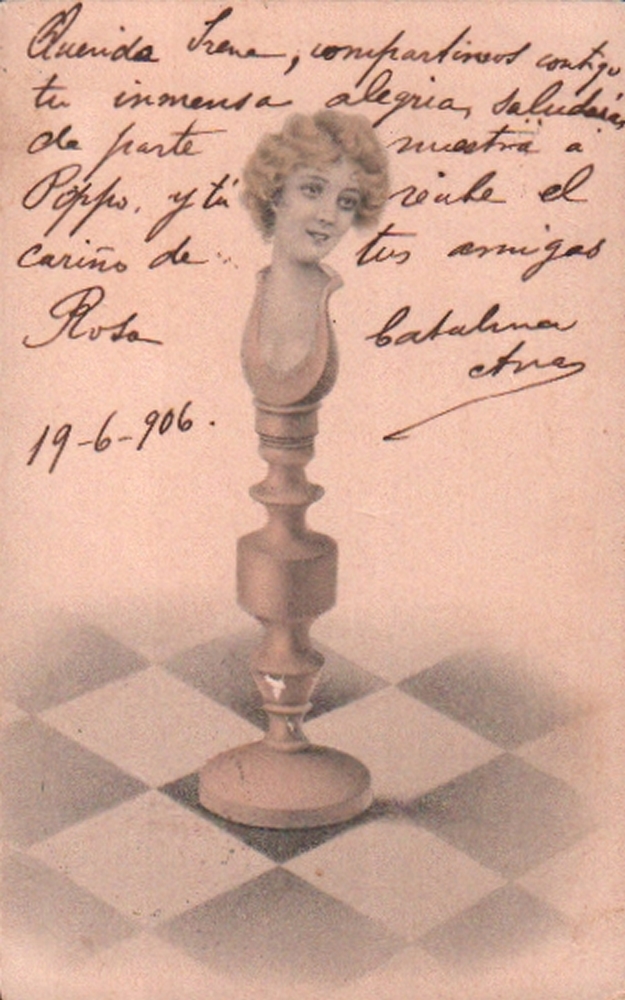 Querida Irene, compartimos contigo
tu inmensa alegria, saludarás
de parte nuestra a
Poppo, y tú recibe el
cariño de tus amigas
Rosa Catalina
Ana
19-6-906.